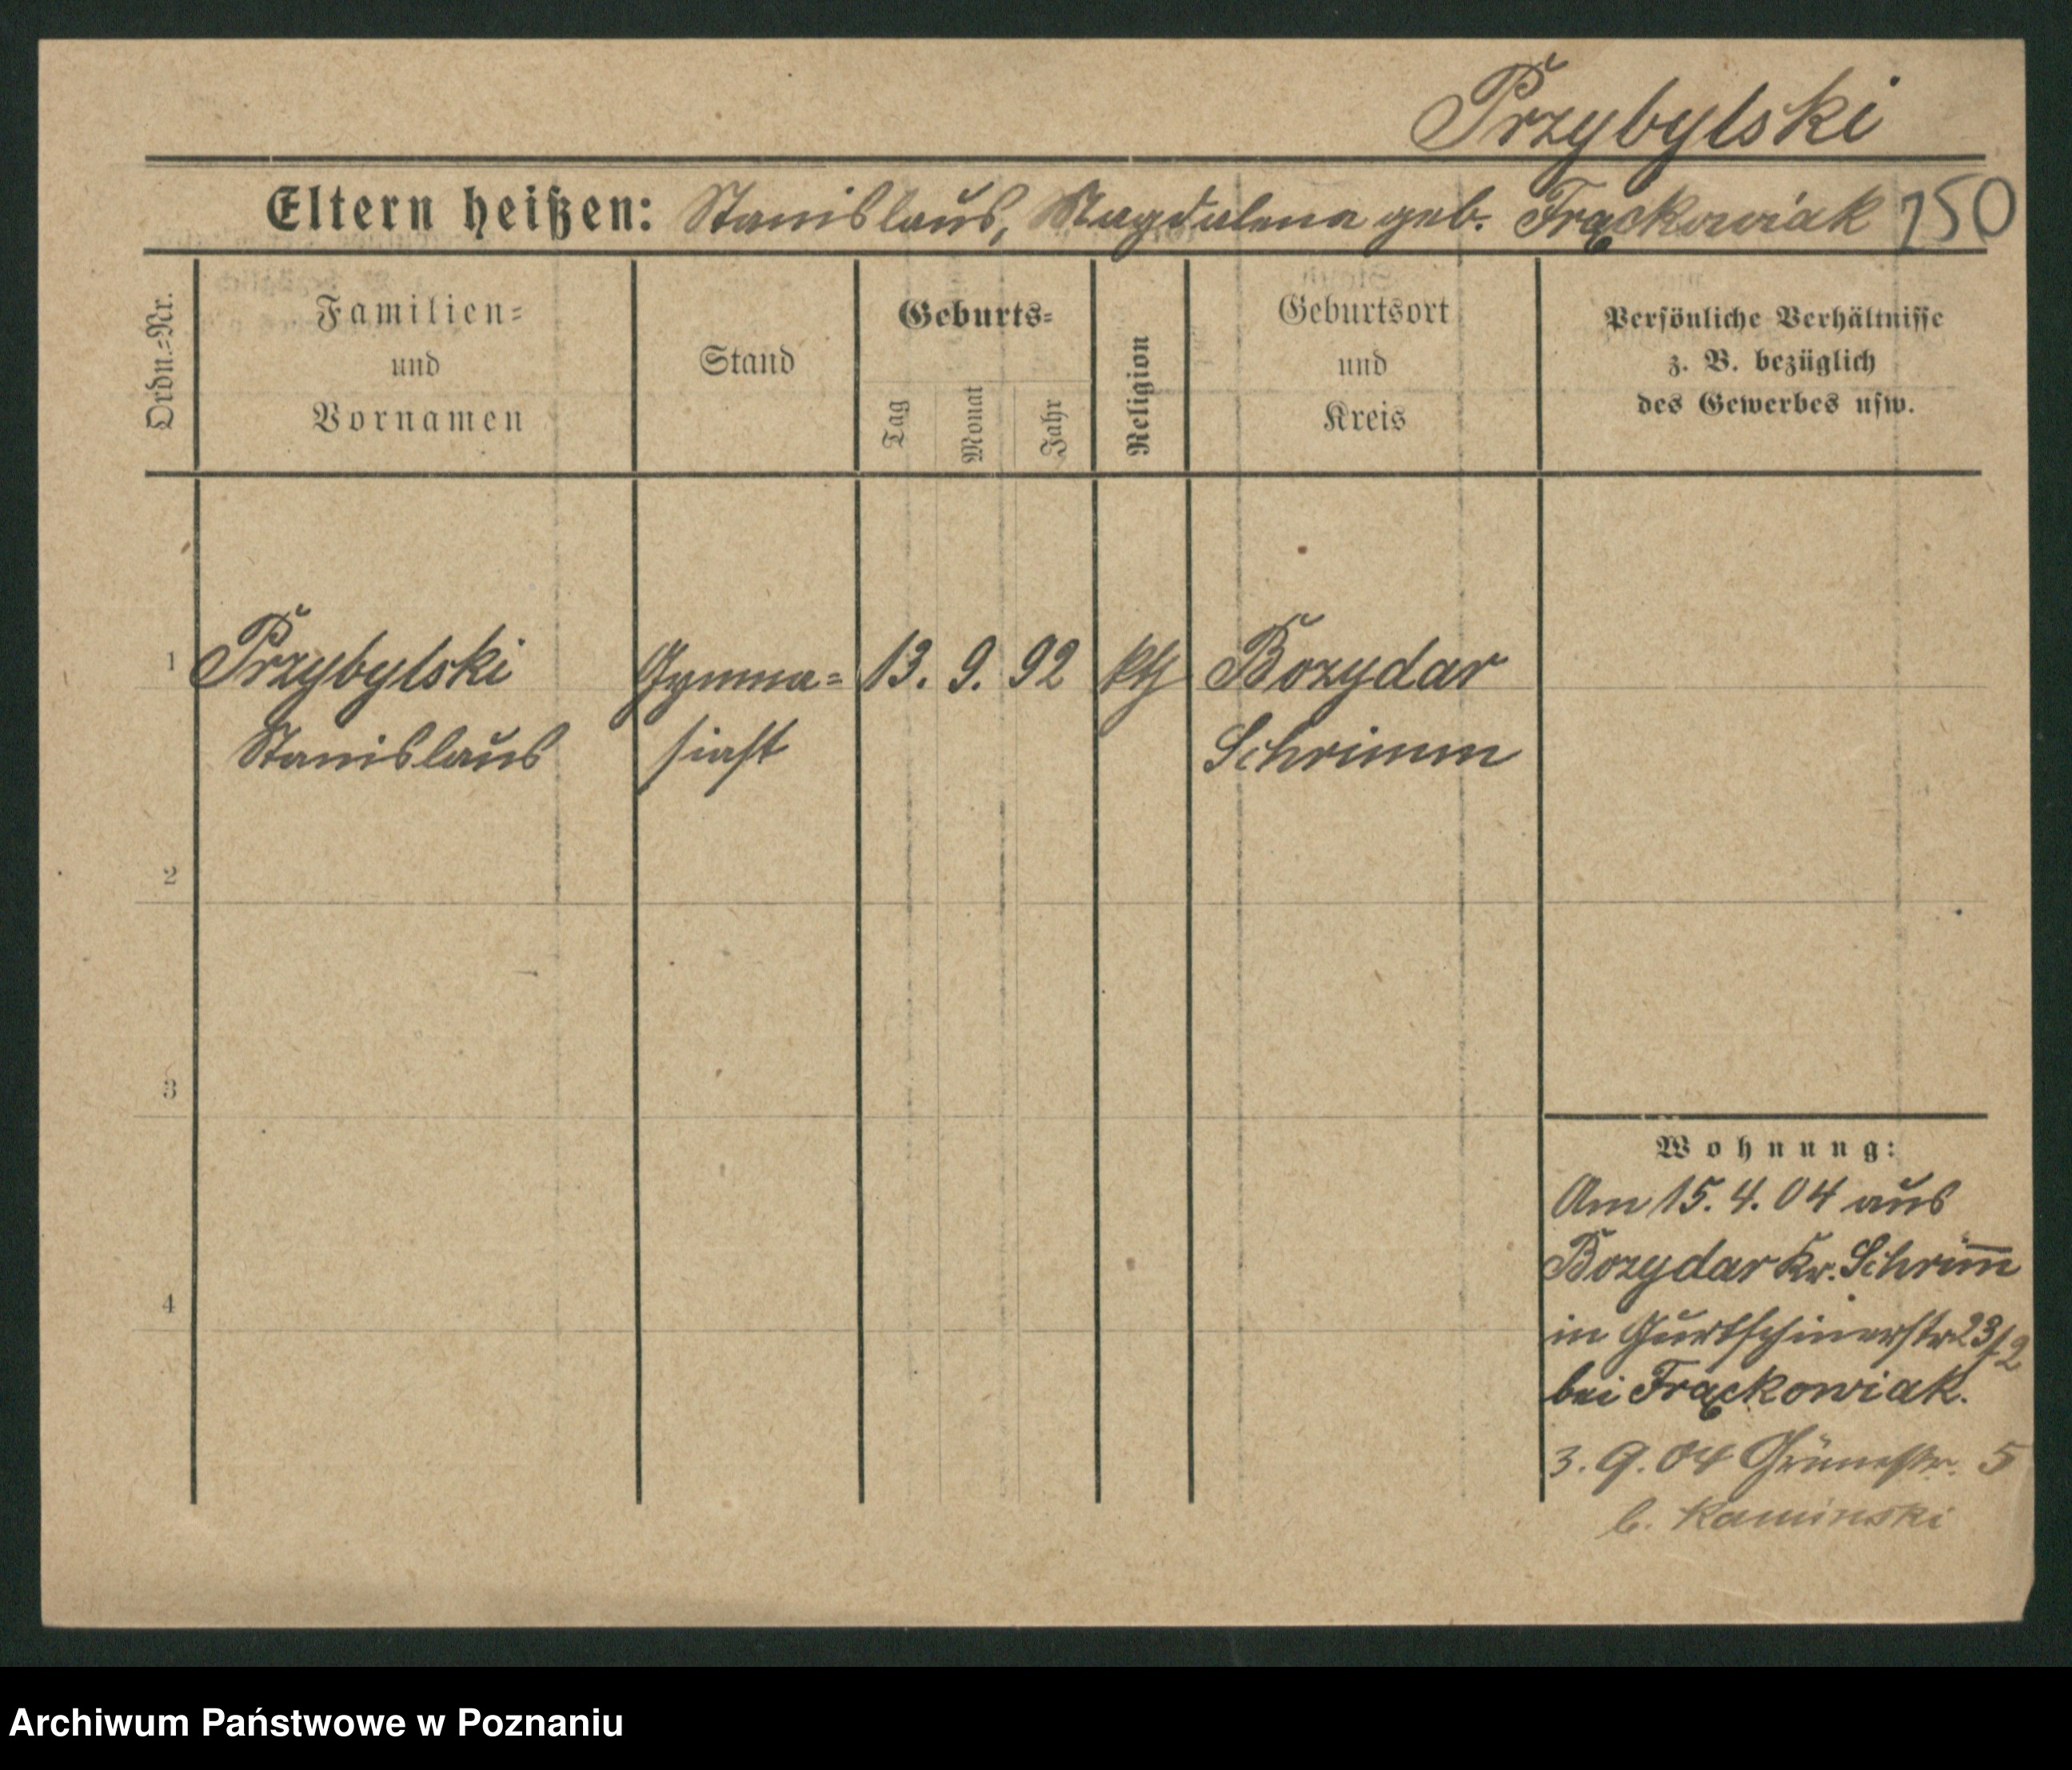 Przybylski
Eltern heißen: Stanislaus, Magdalena geb. Frąckowiak 150
Ordn.-Nr.
Familien-
und
Vornamen
Stand
Geburts-
Tag
Monat
Jahr
Religion
Geburtsort
und
Kreis
Persönliche Verhältnisse
z. B. bezüglich
des Gewerbes usw.
1 Przybylski Gymna- 13. 9. 92 kth Bozydar
Stanislaus siast Schrimm
2
3
4
Wohnung:
Am 15. 4. 04 aus
Bozydar Kr. Schrim̅
in Gurtschinerstr 23/2
bei Frąckowiak.
3. 9. 04 Grünestr. 5
b. Kaminski
Archiwum Państwowe w Poznaniu